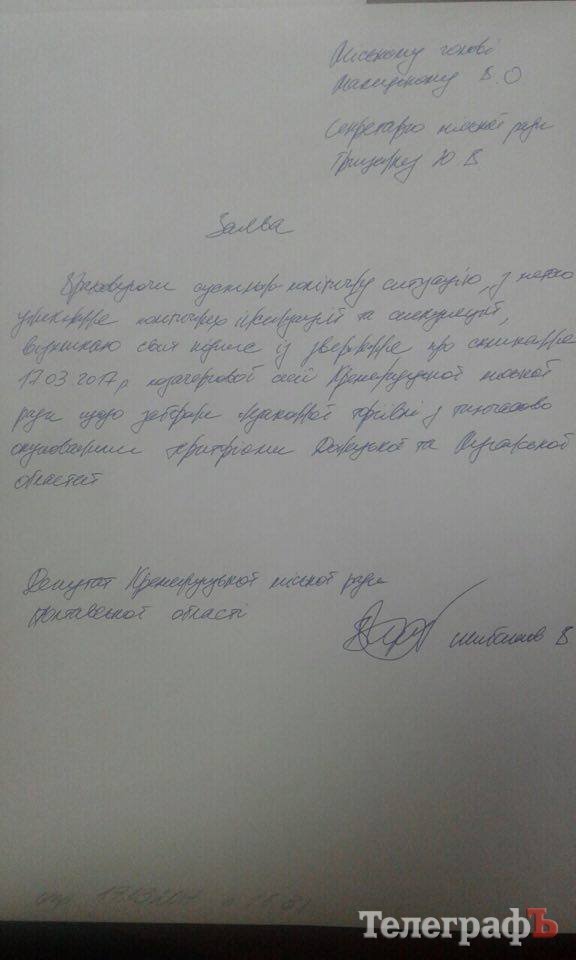 Міському голові
Малецькому В.О
Секретарю міської ради
Гриценку Ю.В.
Заява
Враховуючи суспільно-політичну ситуацію, з метою
уникнення політичних провокацій та спекуляцій,
відкликаю свій підпис із звернення про скликання
17.03.2017р позачергової сесії Кременчуцької міської
ради щодо заборони торгівлі з тимчасово
окупованими територіями Донецької та Луганської
областей
Депутат Кременчуцької міської ради
Полтавської області
В
ТелеграфЪ